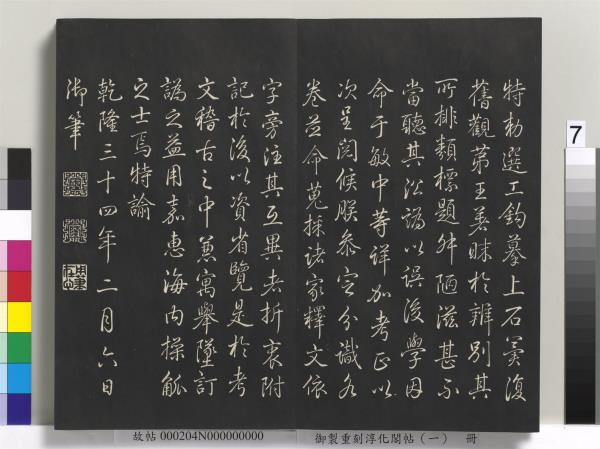 特勅選工鈎摹上石冀復
舊觀第王著昧於辨別其
所排類標題舛陋滋甚不
當聽其沿譌以誤後學因
命于敏中等詳加考正以
次呈閱候朕參定分識各
卷並命蒐採諸家釋文依
字旁注其互異者折衷附
記於後以資省覽是於考
文稽古之中兼寓舉墜訂
譌之益用嘉惠海內操觚
之士焉特諭
乾隆三十四年二月六日
御筆
7
故帖 000204N000000000
御製重刻淳化閣帖（一） 冊